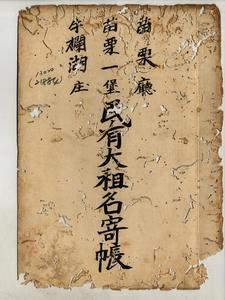 苗栗廳
苗栗一堡民有大租名寄帳
牛欄湖庄